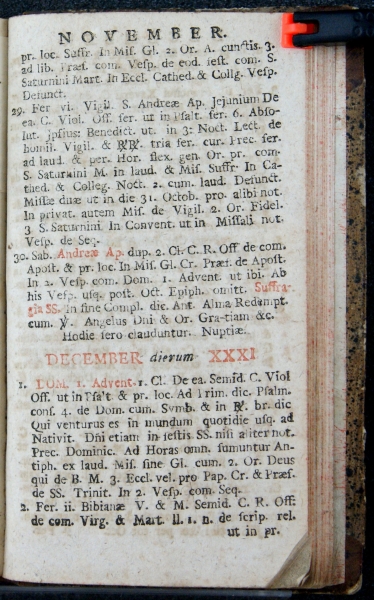 NOVEMBER.
pr. loc. Suffr. In Miſ. Gl. 2. Or. A. cunctis. 3.
ad lib. Præf. com. Veſp. de eod. feſt. com. S.
Saturnini Mart. In Eccl. Cathed. & Collg. Veſp.
Defunct.
29. Fer. vi. Vigil. S. Andreæ Ap. Jejunium De
ea. C. Viol. Off. fer. ut in Pſalt. fer. 6. Abſo-
lut. ipſius: Benedict. ut. in 3: Noct. Lect. de
homil. Vigil. & ℟℟. tria fer. cur. Prec. fer.
ad laud. & per. Hor. flex. gen. Or. pr. com.
S. Saturnini M. in laud. & Miſ. Suffr. In Ca-
thed. & Colleg. Noct. 2. cum. laud. Defunct.
Miſſæ duæ ut in die 31. Octob. pro. alibi not.
In privat. autem Miſ. de Vigil. 2. Or. Fidel.
3. S. Saturnini. In Convent. ut in Miſſali not.
Veſp. de Seq.
30. Sab. Andreæ Ap. dup. 2. Cl. C. R. Off de com.
Apoſt. & pr. loc. In Miſ. Gl. Cr. Præf. de Apoſt.
In 2. Veſp. com. Dom. 1. Advent. ut ibi. Ab
his Veſp. uſq. poſt. Oct. Epiph. omitt. Suffra-
gia SS. In fine Compl. dic. Ant. Alma Redempt.
cum. ℣. Angelus Dni & Or. Gra-tiam &c.
Hodie ſero clauduntur. Nuptiæ.
DECEMBER dierum XXXI
1. DOM. 1. Advent. 1. Cl. De ea. Semid. C. Viol
Off. ut in Pſalt & pr. loc. Ad Prim. dic. Pſalm.
conſ. 4. de Dom. cum. Symb. & in ℟. br. dic
Qui venturus es in mundum quotidie uſq. ad
Nativit. Dñi etiam in feſtis SS. niſi aliter not.
Prec. Dominic. Ad Horas omn. ſumuntur An-
tiph. ex laud. Miſ. ſine Gl. cum. 2. Or. Deus
qui de B. M. 3. Eccl. vel. pro Pap. Cr. & Præf.
de SS. Trinit. In 2. Veſp. com. Seq.
2. Fer. ii. Bibianæ V. & M. Semid. C. R. Off.
de com. Virg. & Mart. ll. 1. n. de ſcrip. rel.
ut in pr.